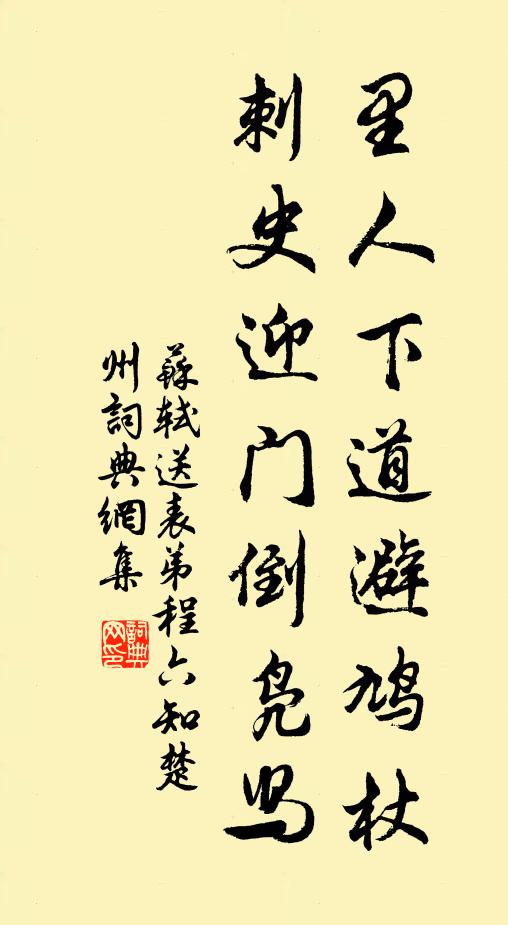 里人下道避鳩杖
刺史迎門倒鳧舄
蘇軾送表弟程六知楚
州詞典網集
詞典
网印